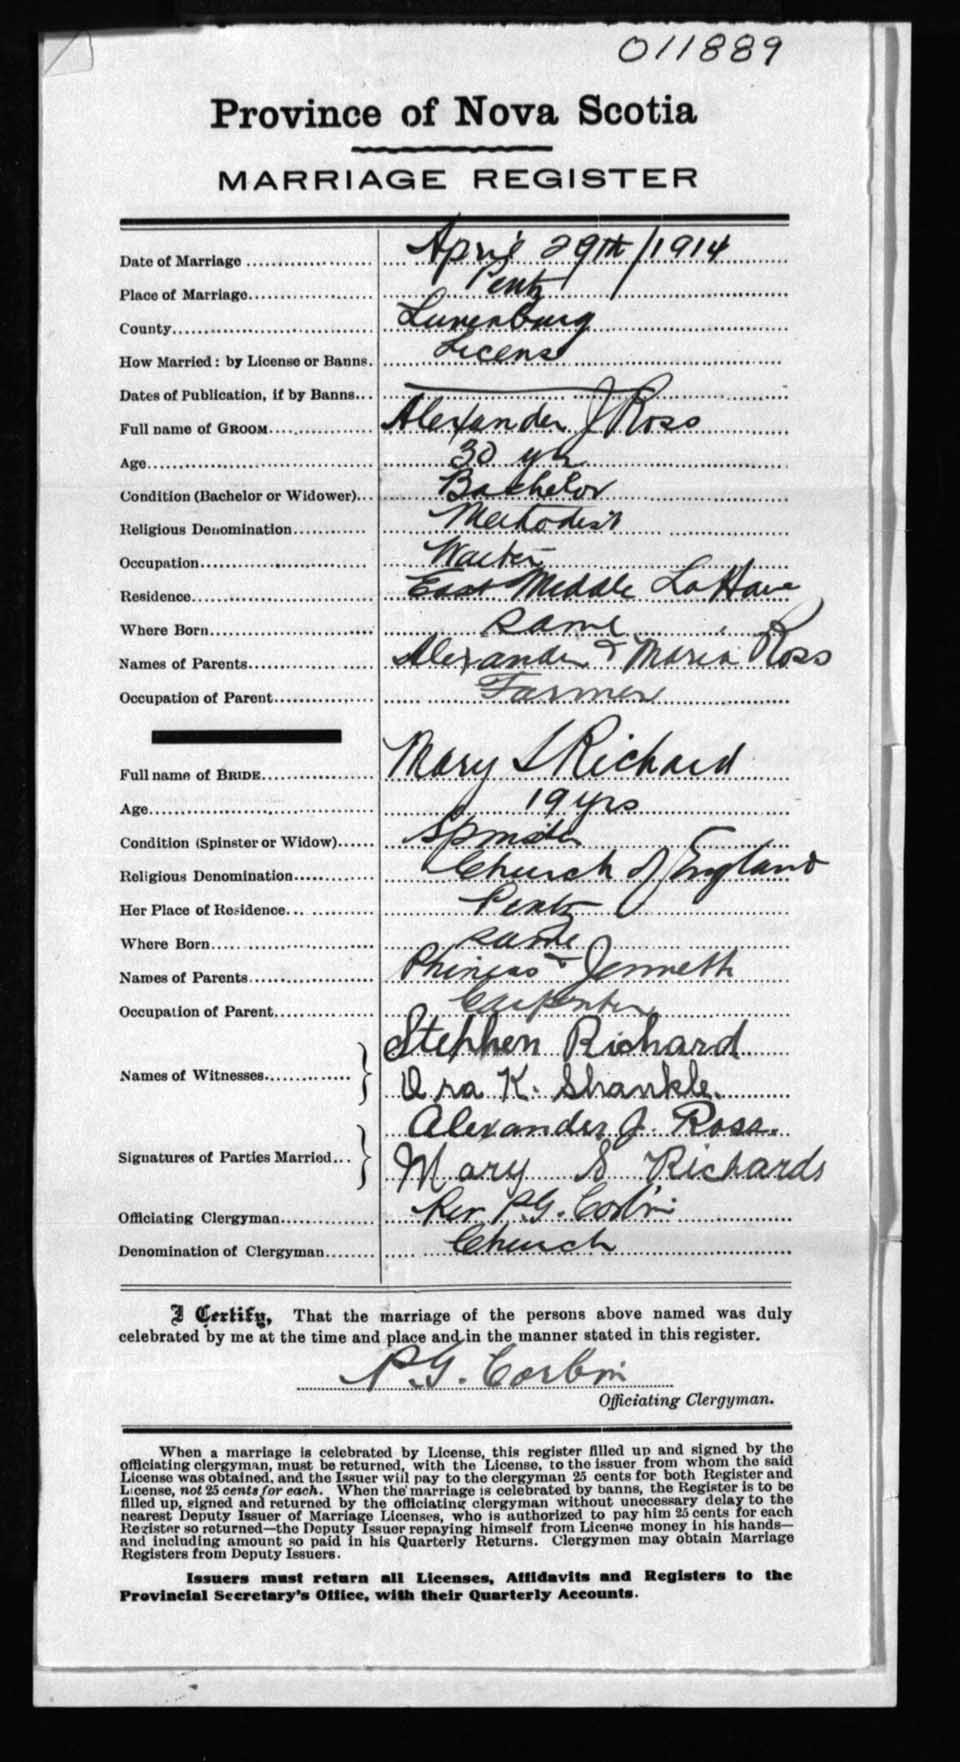 011889
Province of Nova Scotia
MARRIAGE REGISTER
Date of Marriage April 29th/1914
Place of Marriage Pentz
County Lunenburg
How Married: by License or Banns. Licens
Dates of Publication, if by Banns
Full name of GROOM Alexander J Ross
Age 30 yrs
Condition (Bachelor or Widower) Bachelor
Religious Denomination Methodist
Occupation
Residence East Middle LaHave
Where Born same
Names of Parents Alexander & Maria Ross
Occupation of Parent Farmer
Full name of BRIDE Mary S Richard
Age 19 yrs
Condition (Spinster or Widow) Spinster
Religious Denomination Church of England
Her Place of Residence Pentz
Where Born same
Names of Parents Phineas & Jenneth
Occupation of Parent Carpenter
Names of Witnesses Stephen Richard
Ora K. Shankle.
Alexander J. Ross.
Signatures of Parties Married Mary S Richards
Officiating Clergyman Rev P.G. Corbin
Denomination of Clergyman Church
I Certify, That the marriage of the persons above named was duly
celebrated by me at the time and place and in the manner stated in this register.
P.G. Corbin
Officiating Clergyman.
When a marriage is celebrated by License, this register filled up and signed by the
officiating clergyman, must be returned, with the License, to the issuer from whom the said
License was obtained, and the Issuer will pay to the clergyman 25 cents for both Register and
License, not 25 cents for each. When the marriage is celebrated by banns, the Register is to be
filled up, signed and returned by the officiating clergyman without unecessary delay to the
nearest Deputy Issuer of Marriage Licenses, who is authorized to pay him 25 cents for each
Register so returned—the Deputy Issuer repaying himself from License money in his hands—
and including amount so paid in his Quarterly Returns. Clergymen may obtain Marriage
Registers from Deputy Issuers.
Issuers must return all Licenses, Affidavits and Registers to the
Provincial Secretary's Office, with their Quarterly Accounts.